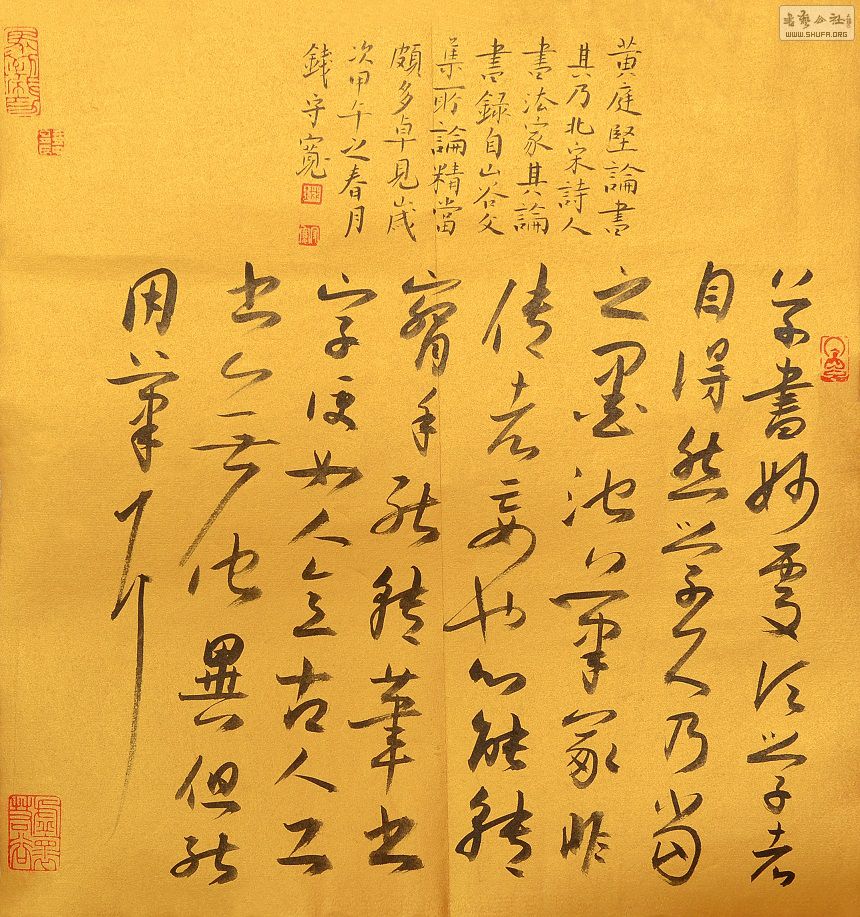 草書妙處须學者
自得然學久乃當
之墨池筆冢非
传者妄也心能轉
腕手能轉筆書
字便如人意古人工
書亦無他異但能
用筆耳
黄庭堅論書
其乃北宋詩人
書法家其論
書録自山谷文
集所論精當
頗多卓見歲
次甲午之春月
錢守寬
WWW.SHUFA.ORG